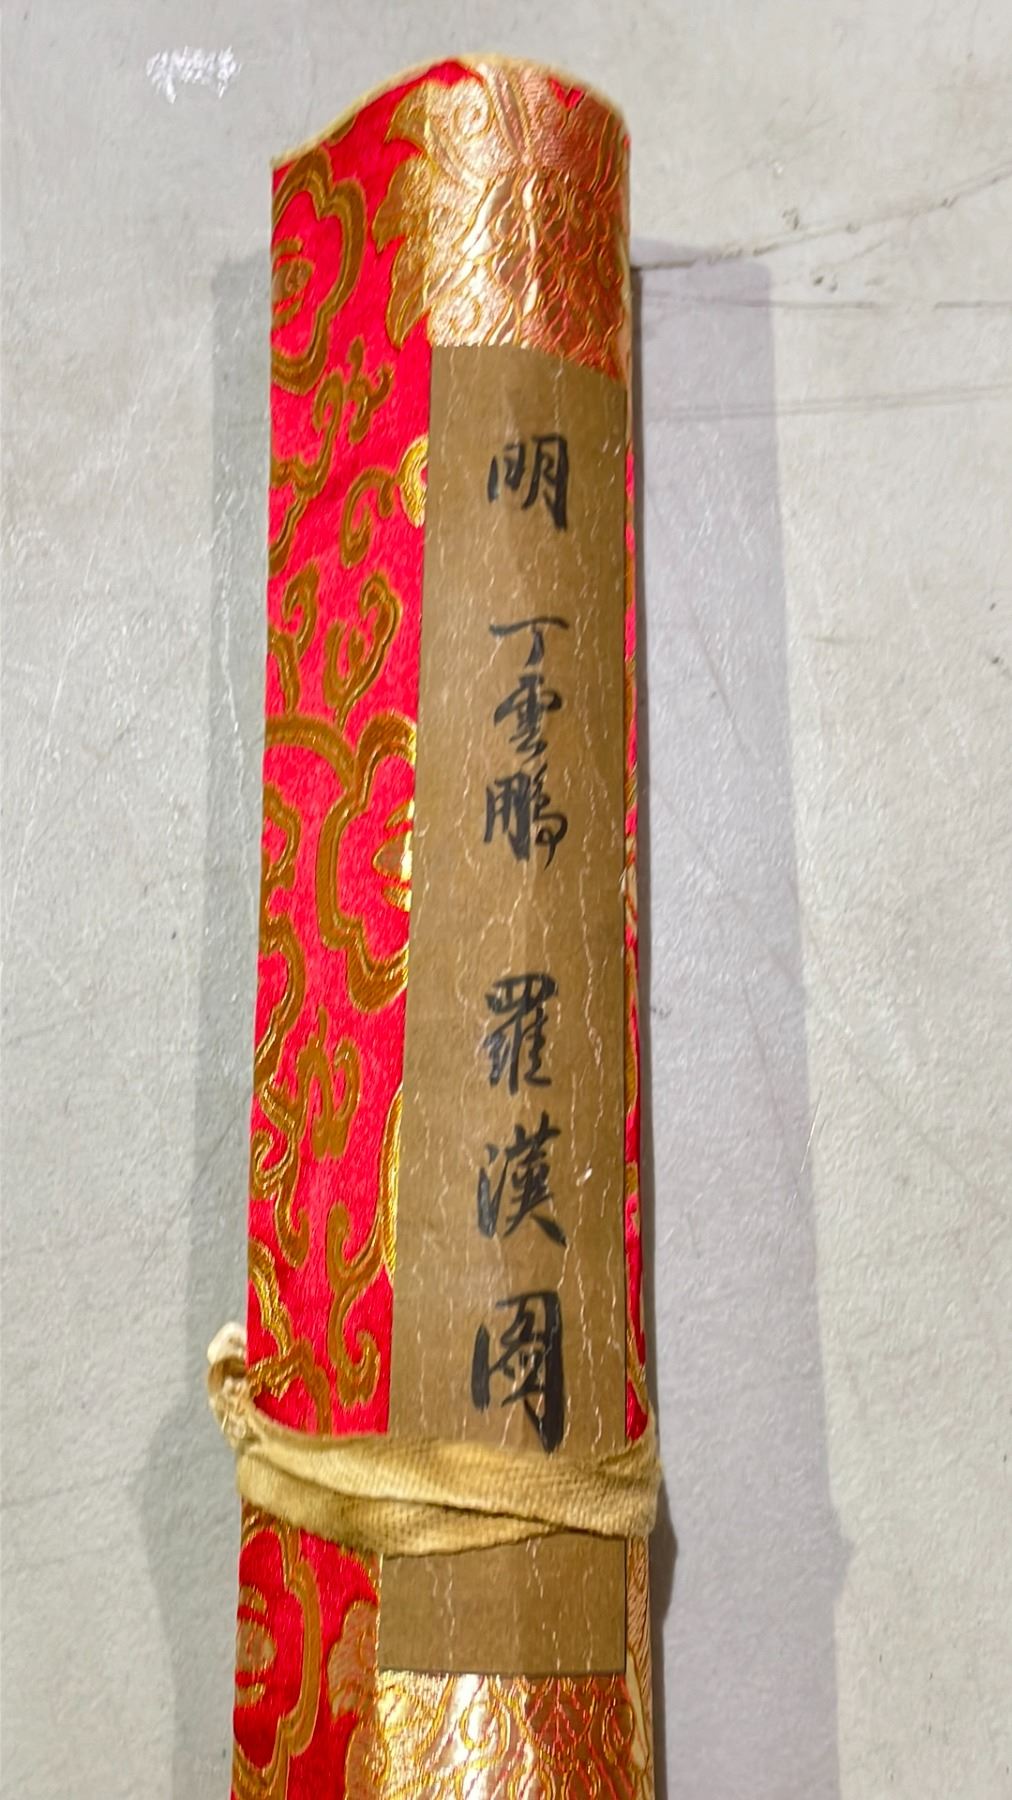 明 丁雲鵬 羅漢圖